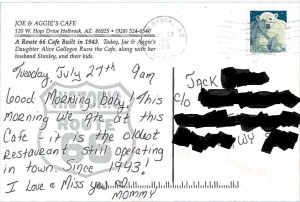 JOE & AGGIE'S CAFE
120 W. Hopi Drive Holbrook, AZ 86025 • (928) 524-6540
A Route 66 Cafe Built in 1943. Today, Joe & Aggie's
Daughter Alice Gallegos Runs the Cafe, along with her
husband Stanley, and their kids.
Tuesday, July 27th 9am
Good Morning, Baby! This
morning we Ate at this
Cafe - it is the oldest
Restaurant still operating
in town. Since 1943!
I Love & Miss you
MOMMY
JACK
c/o
WY